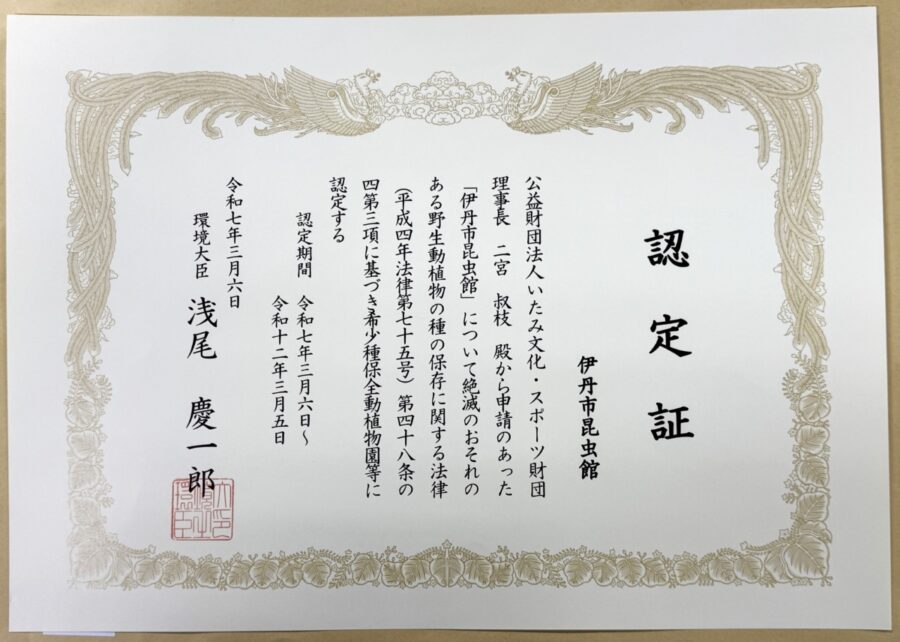 認定証
伊丹市昆虫館
公益財団法人いたみ文化・スポーツ財団
理事長 二宮 叔枝 殿から申請のあった
「伊丹市昆虫館」について絶滅のおそれの
ある野生動植物の種の保存に関する法律
(平成四年法律第七十五号)第四十八条の
四第三項に基づき希少種保全動植物園等に
認定する
認定期間 令和七年三月六日~
令和十二年三月五日
令和七年三月六日
環境大臣 浅尾 慶一郎